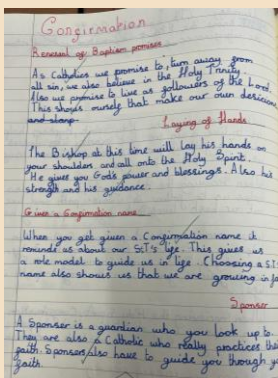 Confirmation
Renewal of Baptism promises
As Catholics we promise to, turn away from
all sin, we also believe in the Holy Trinity.
Also we promise to live as followers of the Lord.
This shows myself that make our own desicions
and stamp
Laying of Hands
The Bishop at this time will lay his hands on
your shoulders and call onto the Holy Spirit.
He gives you God's power and blessings. Also his
strength and his guidance.
Given a Confirmation name
When you get given a Confirmation name it
reminds us about our S.T's life. This gives us
a role model to guide us in life. Choosing a S.T
name also shows us that we are growing in
Sponser
A Sponser is a guardian who you look up to.
They are also a Catholic who really practices the
faith. Sponsers also have to guide you through
faith.